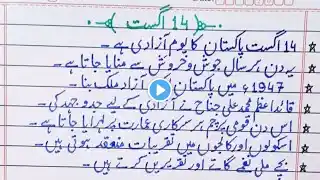 14 اگست
14 اگست پاکستان کا یوم آزادی ہے۔
یہ دن ہر سال جوش و خروش سے منایا جاتا ہے۔
1947ء میں پاکستان ایک آزاد ملک بنا۔
قائداعظم محمد علی جناح نے آزادی کے لیے جدوجہد کی۔
اس دن قومی پرچم ہر سرکاری عمارت پر لہرایا جاتا ہے۔
اسکولوں اور کالجوں میں تقریبات منعقد ہوتی ہیں۔
بچے ملی نغمے گاتے اور تقریریں کرتے ہیں۔